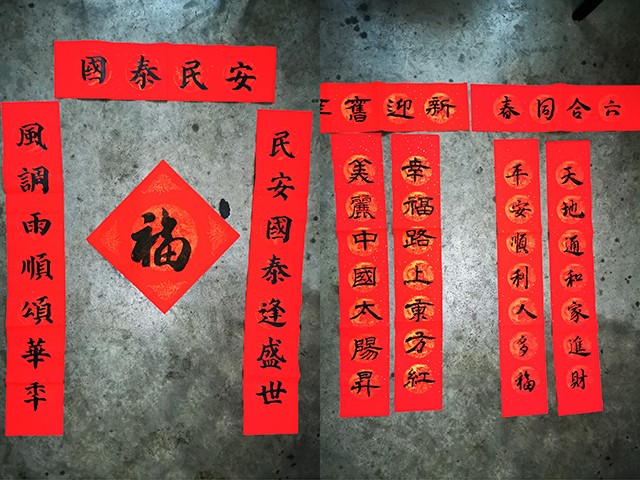 國泰民安
民安國泰逢盛世
風調雨順頌華年
福
舊迎新
幸福路上東方紅
美麗中國太陽昇
六合同春
天地通和家進財
平安順利人多福